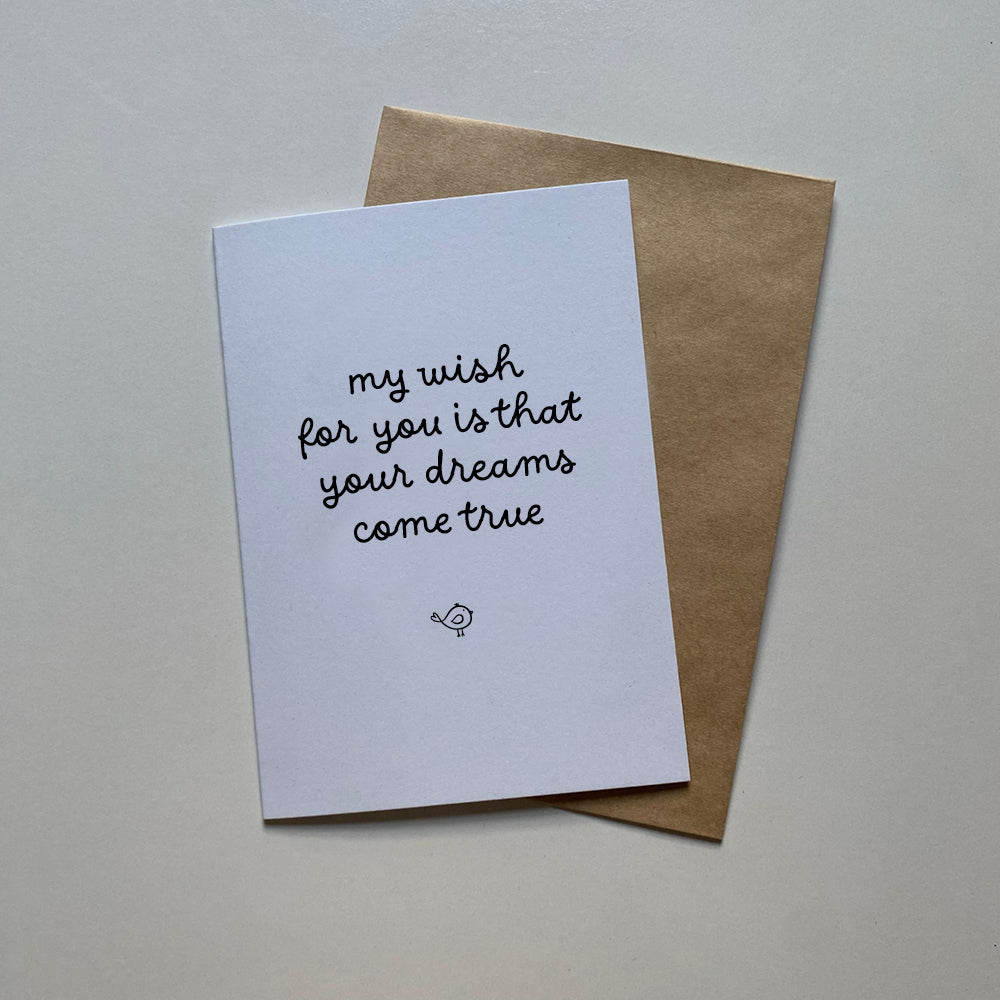 my wish
for you is that
your dreams
come true